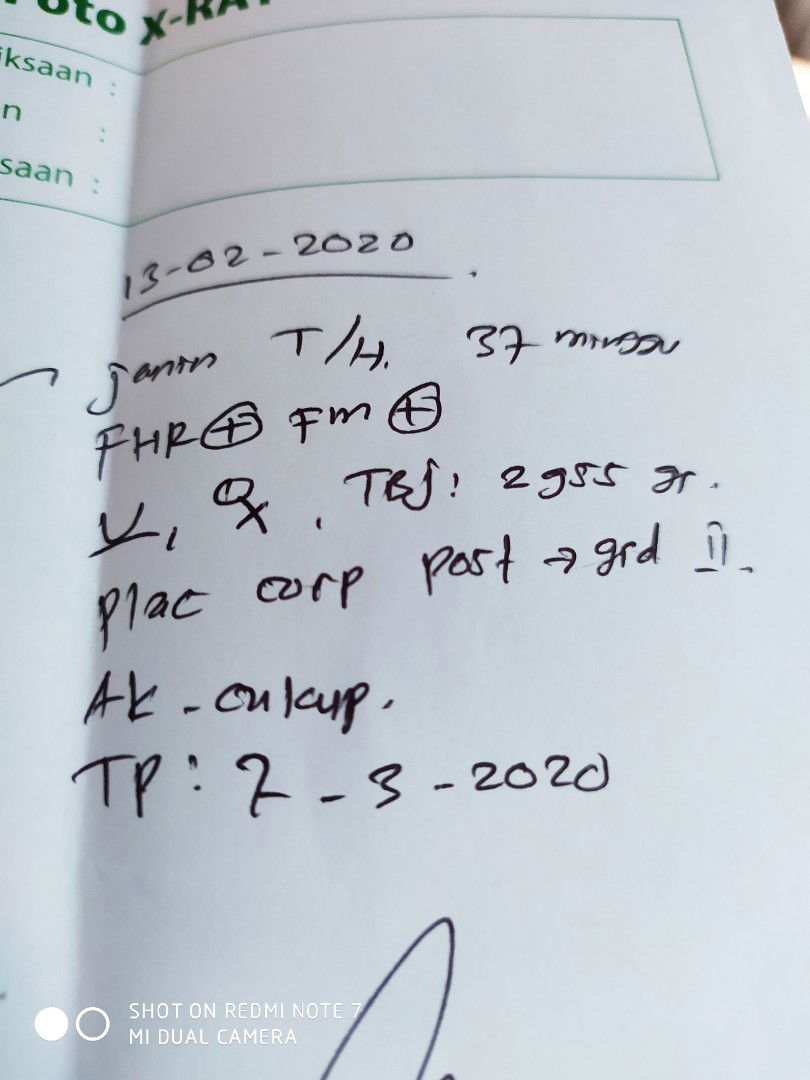 oto X-RAY
iksaan :
n :
saan :
13-02-2020
janin T/H. 37 minggu
FHR ⊕ FM ⊕
TBJ: 2955 gr.
plac corp post → grd II.
Ak - cukup.
TP: 7-3-2020
SHOT ON REDMI NOTE 7
MI DUAL CAMERA